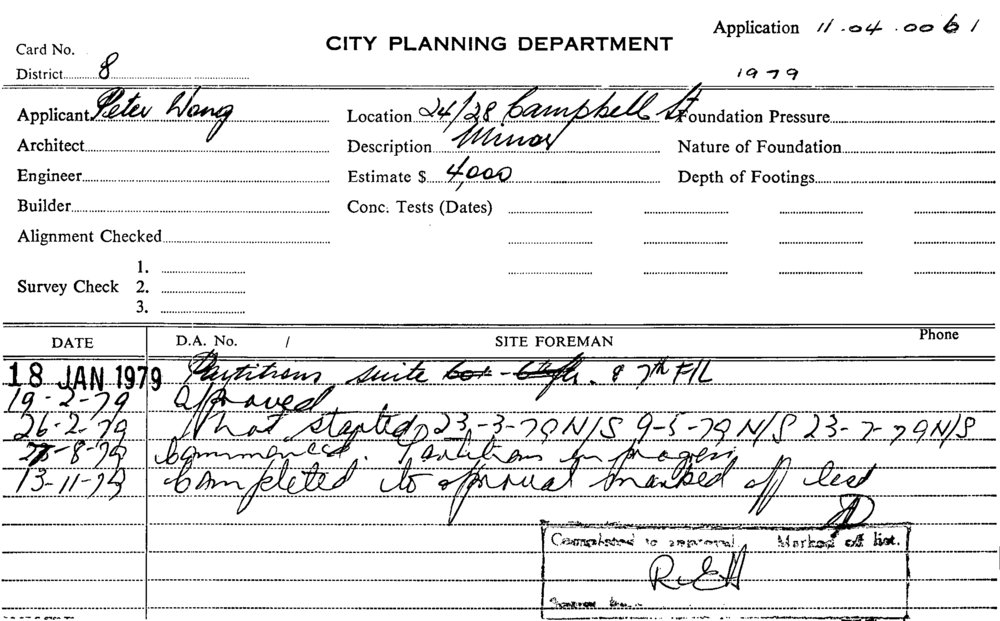 Application 11.04.0061
Card No.
CITY PLANNING DEPARTMENT
District 8
1979
Applicant Peter Wong
Location 24/28 Campbell St
Foundation Pressure
Architect
Description Minor
Nature of Foundation
Engineer
Estimate $ 4,000
Depth of Footings
Builder
Conc. Tests (Dates)
Alignment Checked
1.
Survey Check 2.
3.
DATE D.A. No. / SITE FOREMAN Phone
18 JAN 1979 Partitions suite & 7th F/L
19-2-79 approved
26-2-79 not started 23-3-79 N/S 9-5-79 N/S 23-7-79 N/S
-8-79 Commenced. Partitions in progress
13-11-79 Completed to approval marked off list
Completed to approval. Marked off list.
R.E.H